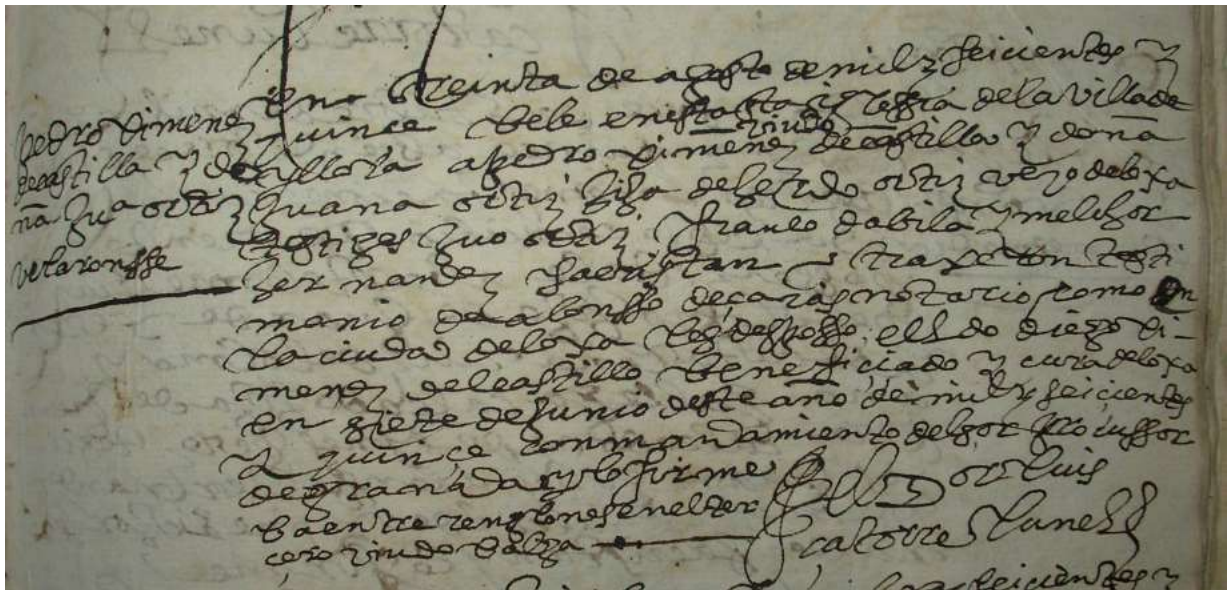 Pedro Ximenez
de castilla y do
ña Juª ortiz
velaronsse
En treinta de agosto de mil y seicientes y
quince bele en esta sta iglessia dela villa de
yllora a pedro ximenez viudo de castilla y doña
Juana ortiz hija del ldo ortiz vezo de loxa
testigos Juo ortiz franco dabila y melchor
hernandez sacristan y traxeron testi
monio de alonsso de caras notario como en
la ciudad de loxa los desposso el ldo diego xi-
menez del castillo beneficiado y cura de loxa
en siete de junio deste año de mil y seicientos
y quinçe con mandamiento del sor probissor
de granada y lo firme
ba entre renglones en el ter
cero viudo balga
El Dor Luis
ca torre
seicientes y